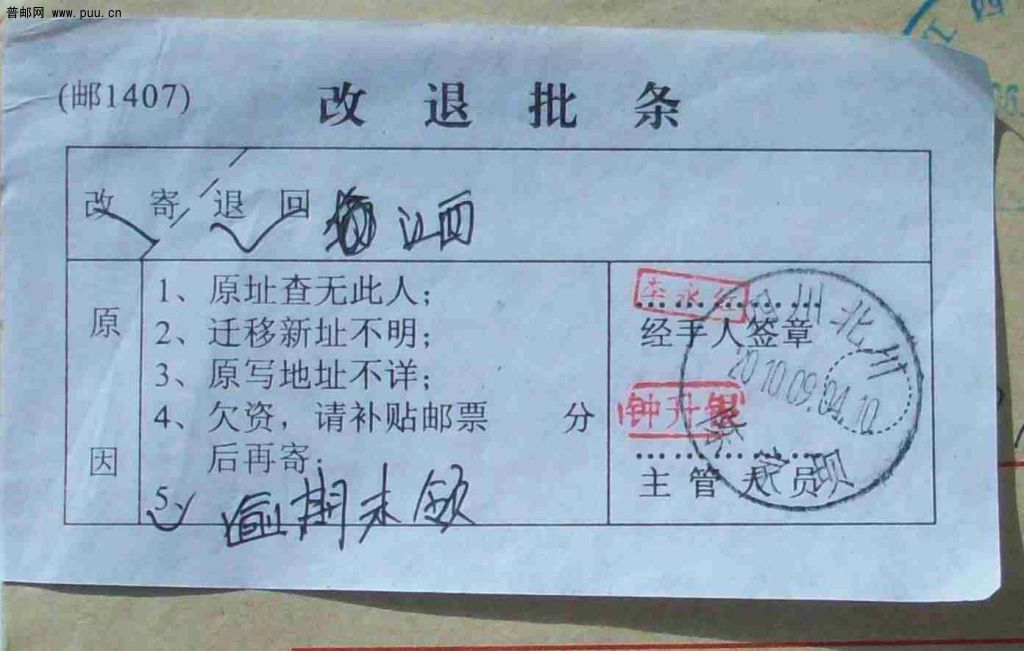 普邮网 www.puu.cn
(邮1407) 改退批条
改寄退回 江西
原因
1、原址查无此人；
2、迁移新址不明；
3、原写地址不详；
4、欠资，请补贴邮票 分
后再寄；
5、逾期未领
经手人签章
钟升
主管人员
州北
2010.09.04.10